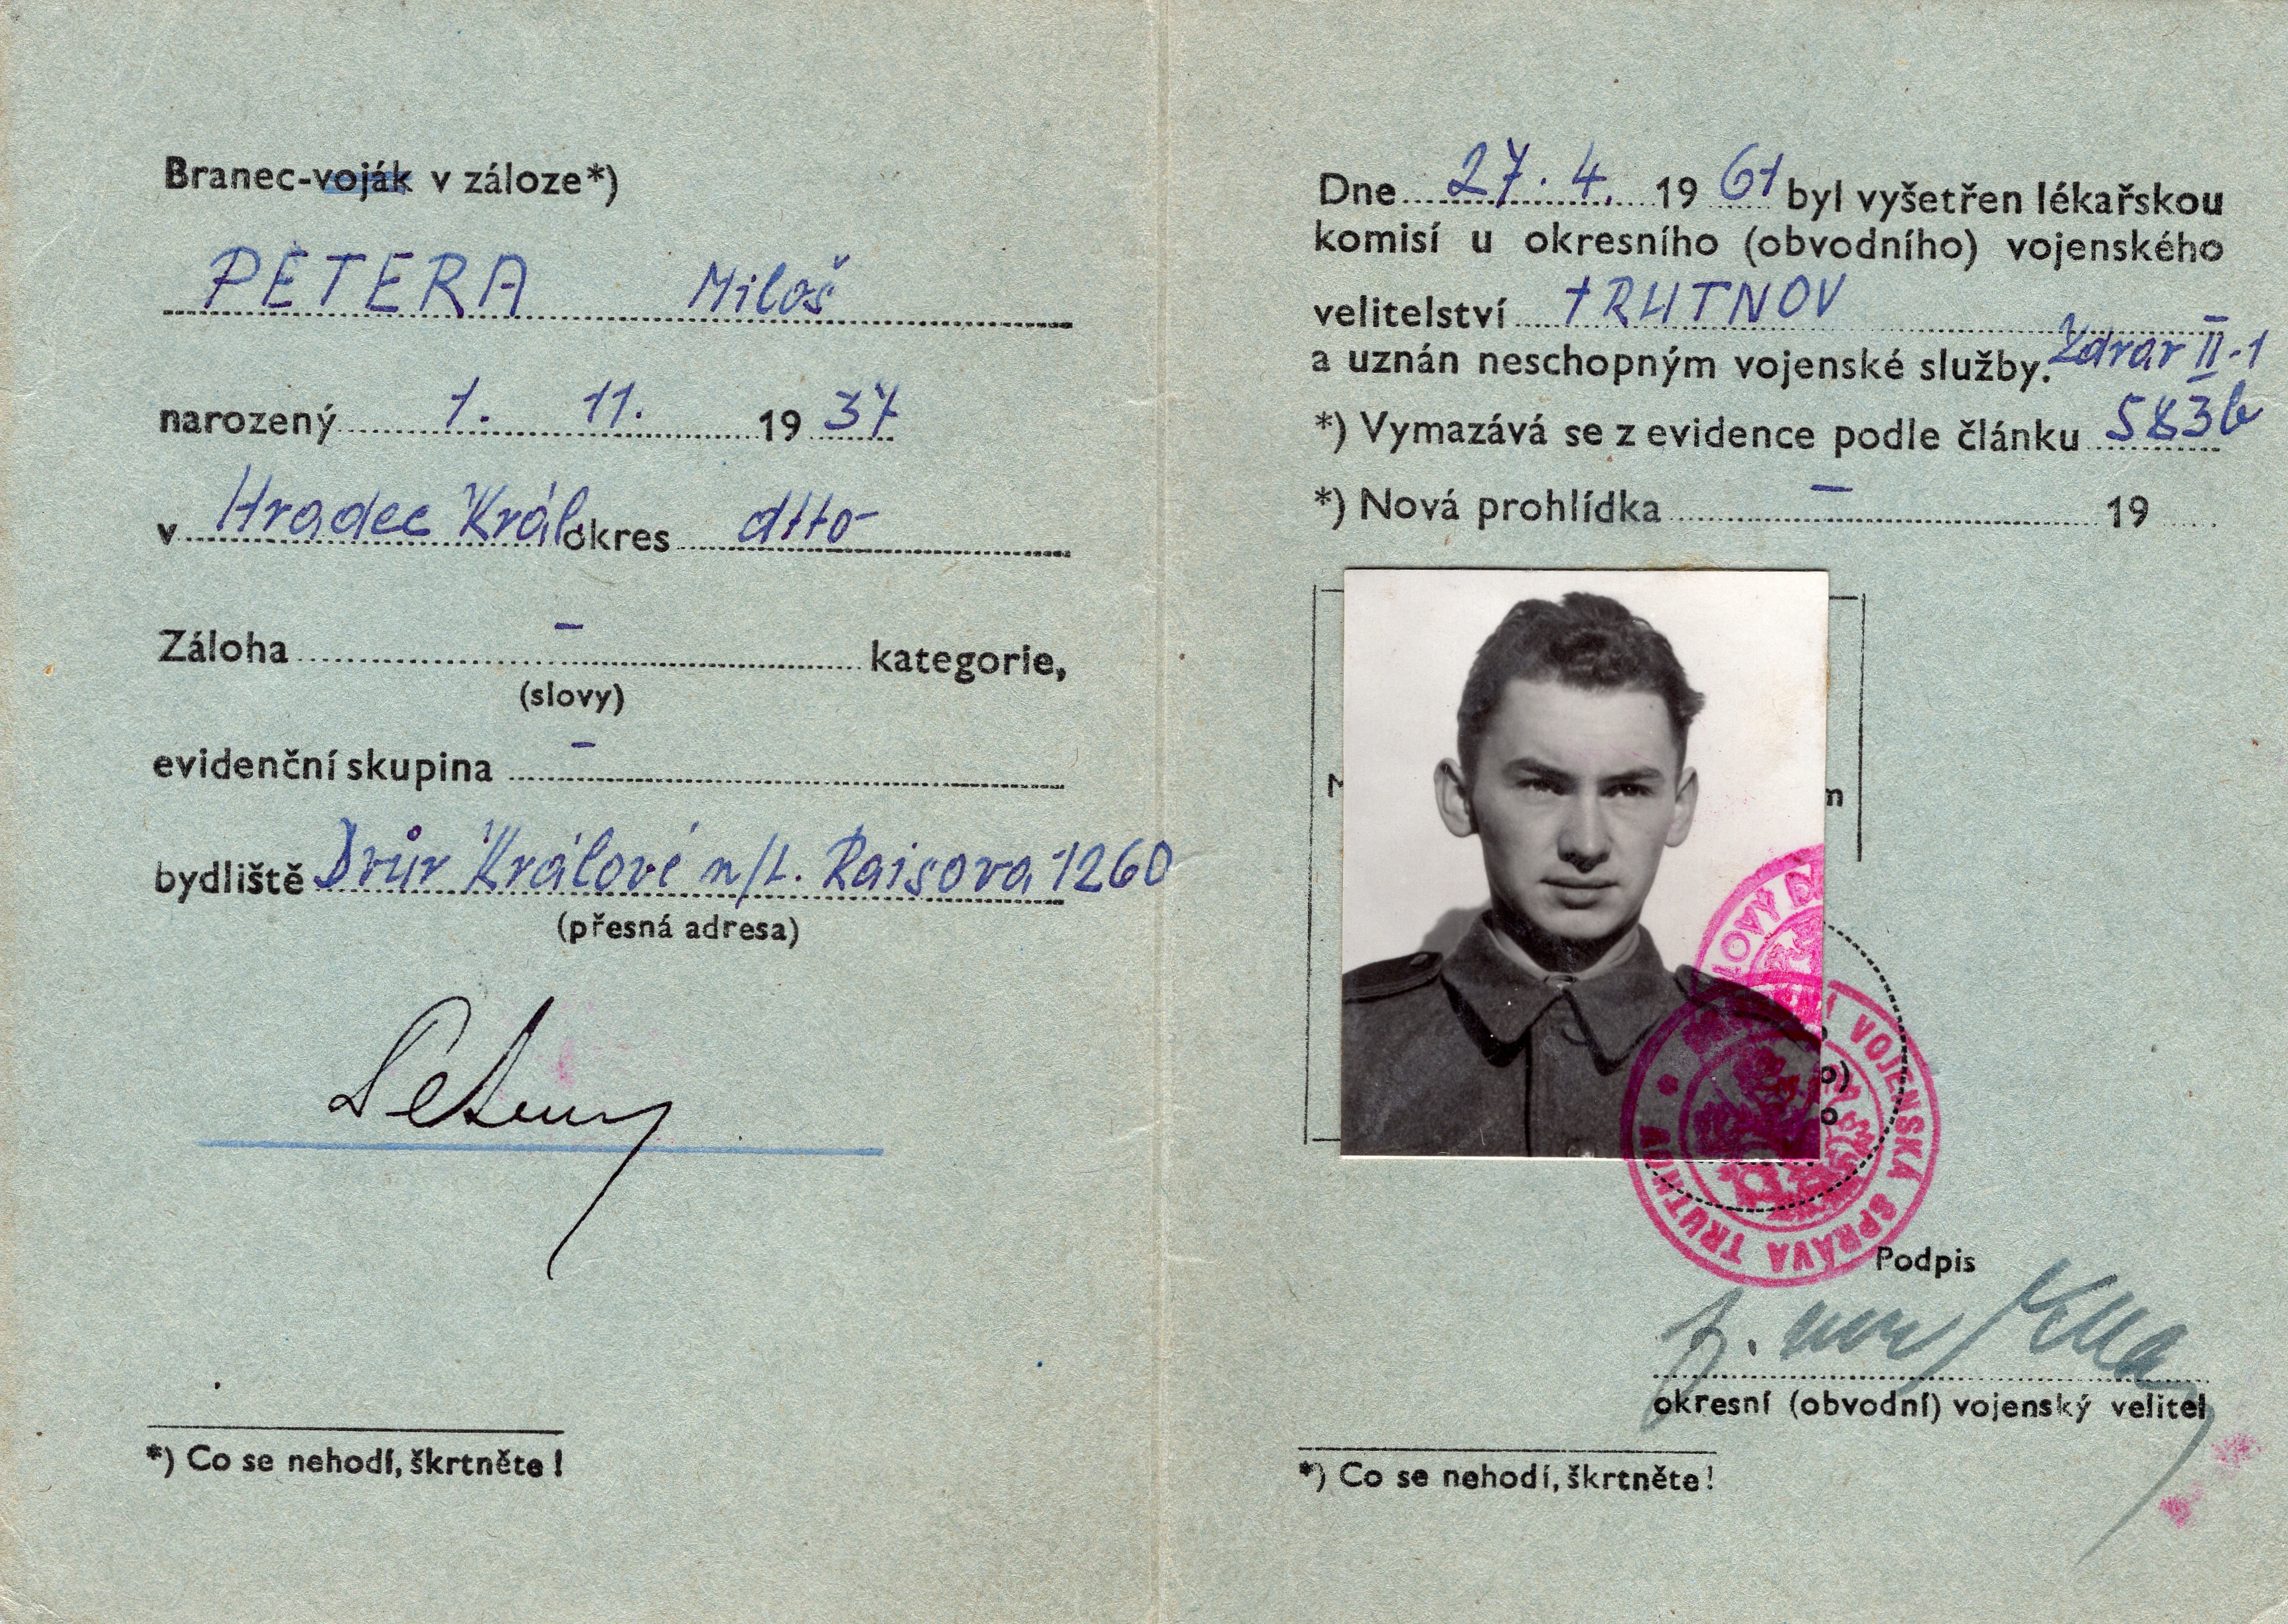 Branec-voják v záloze*)
PETERA Miloš
narozený 1. 11. 19 37
v Hradec Král okres dtto-
Záloha - kategorie,
(slovy)
evidenční skupina -
bydliště Dvůr Králové n/L. Raisova 1260
(přesná adresa)
*) Co se nehodí, škrtněte!
Dne 27. 4. 19 61 byl vyšetřen lékařskou
komisí u okresního (obvodního) vojenského
velitelství TRUTNOV
a uznán neschopným vojenské služby. Zdrav II-1
*) Vymazává se z evidence podle článku 583b
*) Nová prohlídka - 19
VOJENSKÁ SPRÁVA TRUTNOV
Podpis
okresní (obvodní) vojenský velitel
*) Co se nehodí, škrtněte!